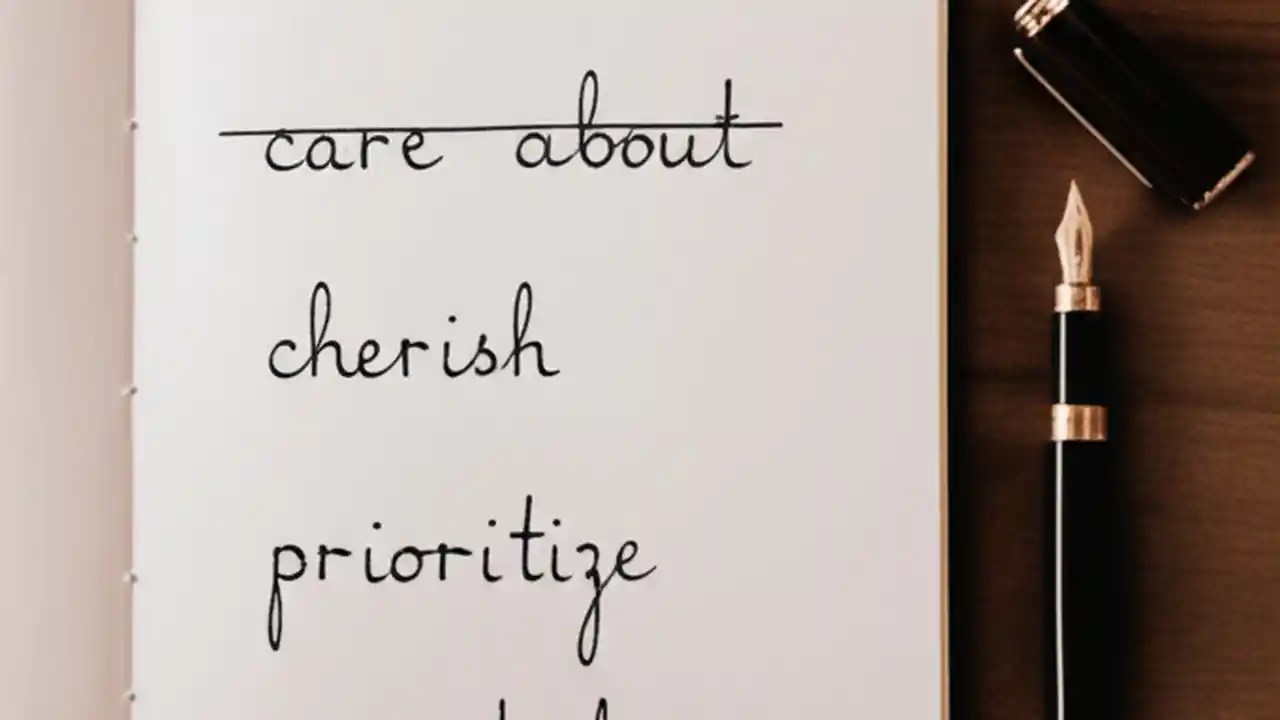 care about
cherish
prioritize